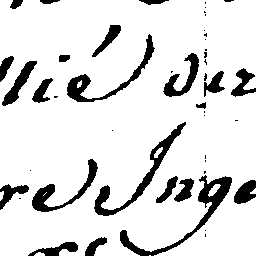 llié der
re Inge